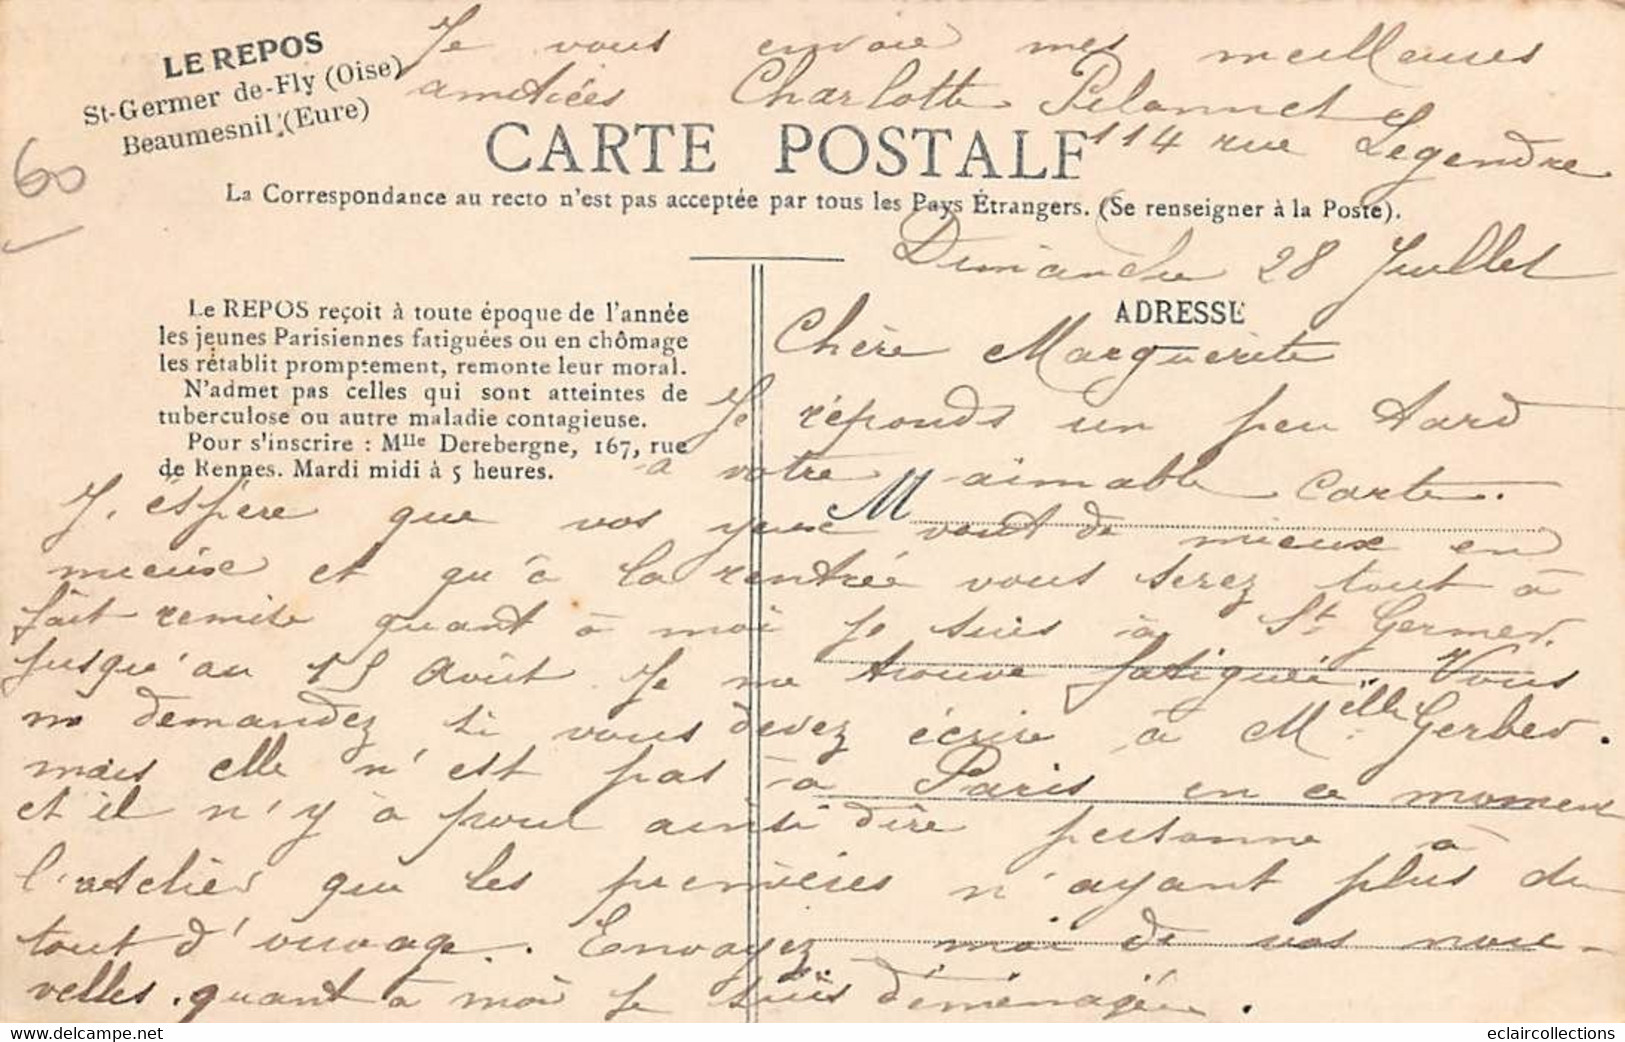 LE REPOS
St-Germer de-Fly (Oise)
Beaumesnil (Eure)
60
Je vous envoie mes meilleures
amitiées Charlotte
114 rue Legendre
CARTE POSTALE
La Correspondance au recto n'est pas acceptée par tous les Pays Étrangers. (Se renseigner à la Poste).
Le REPOS reçoit à toute époque de l'année
les jeunes Parisiennes fatiguées ou en chômage
les rétablit promptement, remonte leur moral.
N'admet pas celles qui sont atteintes de
tuberculose ou autre maladie contagieuse.
Pour s'inscrire : Mlle Derebergne, 167, rue
de Rennes. Mardi midi à 5 heures.
ADRESSE
M
Dimanche 28 Juillet
Chère Marguerite
Je réponds un peu tard
a votre aimable carte.
J. éspère que vos yeux vont de mieux en
mieux et qu'à la rentrée vous serez tout à
fait remise quant à moi je suis à St Germer.
jusqu'au 15 Août. Je me trouve fatiguée. Vous
me demandez si vous devez écrire à Melle Gerber.
mais elle n'est pas à Paris en ce moment
et il n'y à pour ainsi dire personne à
l'atelier que les premières n'ayant plus du
tout d'ouvrage. Envoyez moi de vos nou-
velles. quant à moi je suis déménagée.
eclaircollections
www.delcampe.net